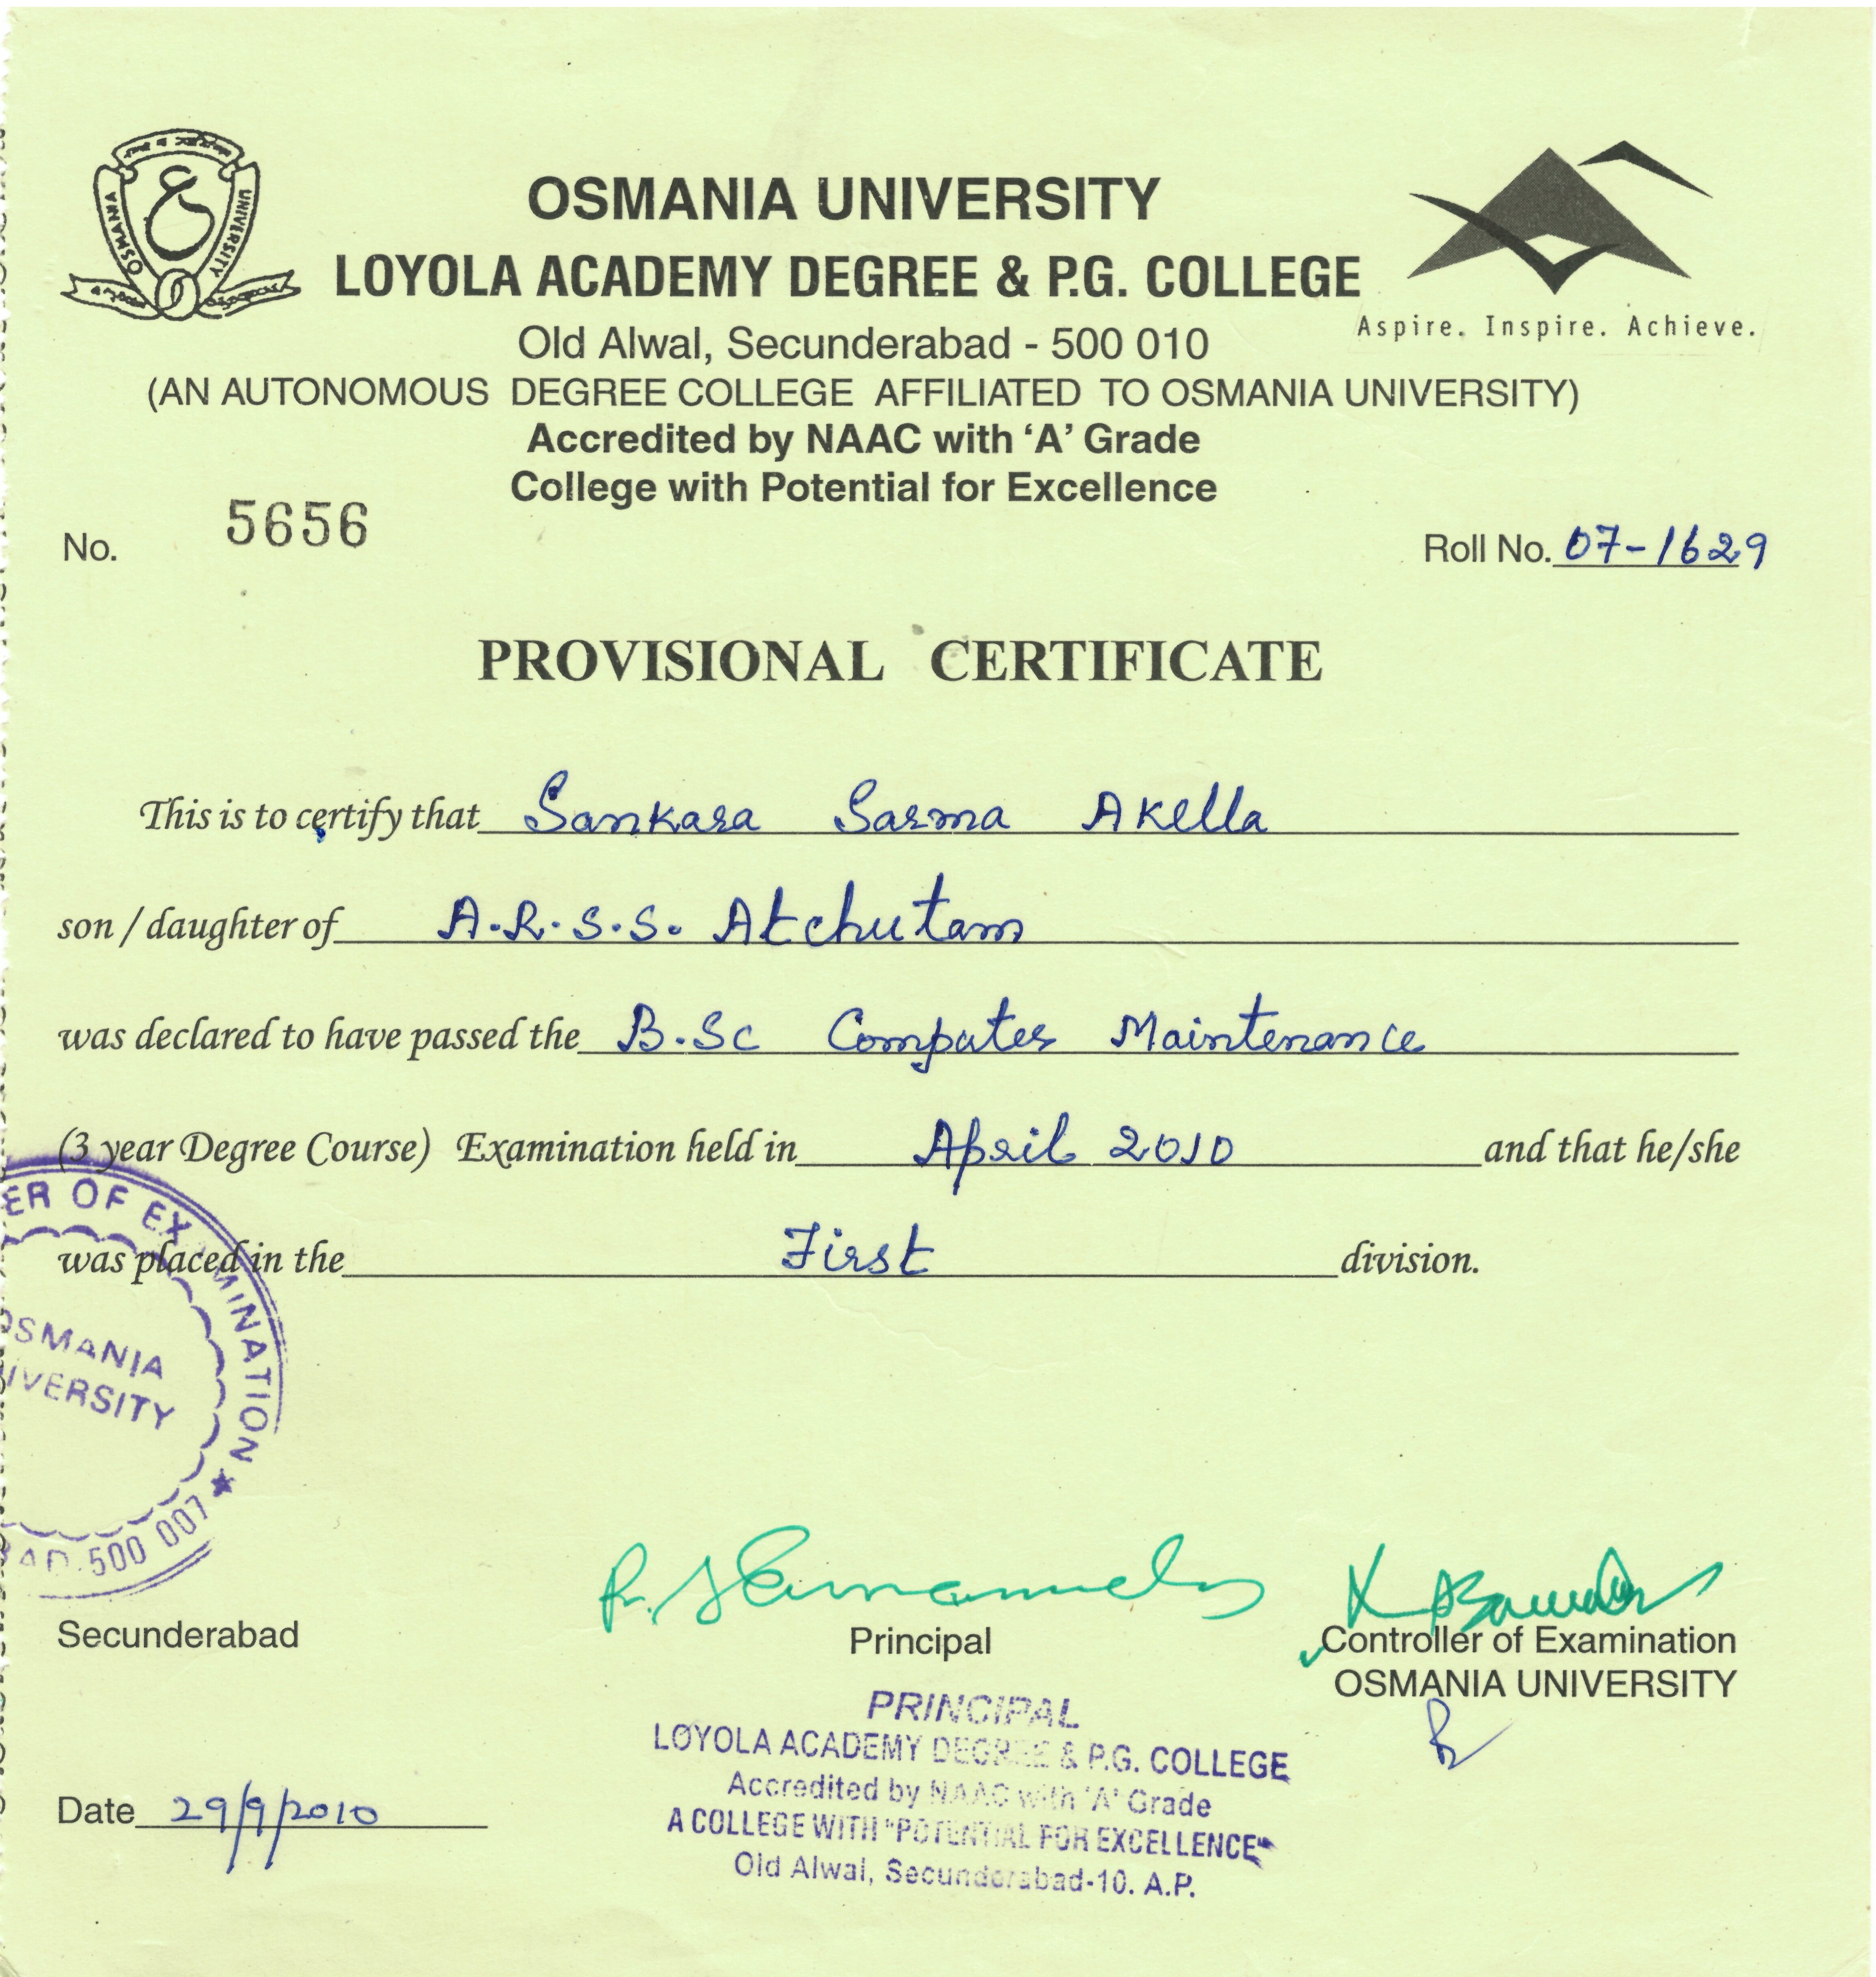 OSMANIA UNIVERSITY
OSMANIA UNIVERSITY
LOYOLA ACADEMY DEGREE & P.G. COLLEGE
Aspire. Inspire. Achieve.
Old Alwal, Secunderabad - 500 010
(AN AUTONOMOUS DEGREE COLLEGE AFFILIATED TO OSMANIA UNIVERSITY)
Accredited by NAAC with ‘A’ Grade
College with Potential for Excellence
No. 5656
Roll No. 07-1629
PROVISIONAL CERTIFICATE
This is to certify that Sankara Sarma Akella
son / daughter of A.R.S.S. Atchutam
was declared to have passed the B.Sc Computer Maintenance
(3 year Degree Course) Examination held in April 2010 and that he/she
was placed in the First division.
ER OF EXAMINATION ★
OSMANIA
IVERSITY
BAD. 500 007
Secunderabad
Principal
Controller of Examination
OSMANIA UNIVERSITY
PRINCIPAL
LOYOLA ACADEMY DEGREE & P.G. COLLEGE
Accredited by NAAC with 'A' Grade
A COLLEGE WITH "POTENTIAL FOR EXCELLENCE"
Old Alwal, Secunderabad-10. A.P.
Date 29/9/2010